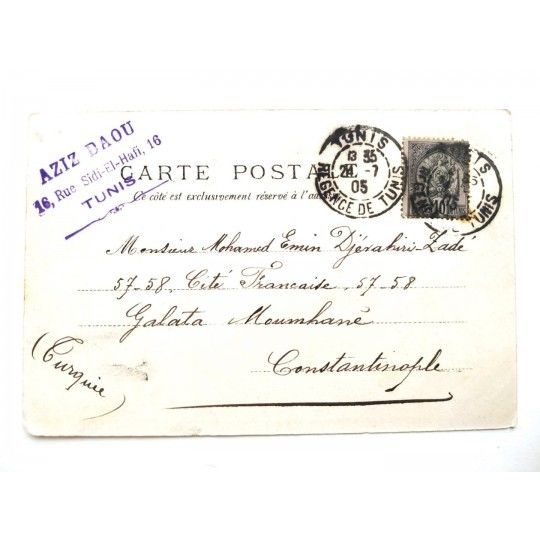 AZIZ DAOU
16, Rue Sidi-El-Hafi, 16
TUNIS
CARTE POSTA
Ce côté est exclusivement réservé à l'a
TUNIS
13 35
-7
05
REGENCE DE TUNIS
10
TUNIS
Monsieur Mohamed Emin Djévahiri-Zadé
57-58, Cité Française, 57-58
Galata Moumhané
Constantinople
(Turquie)